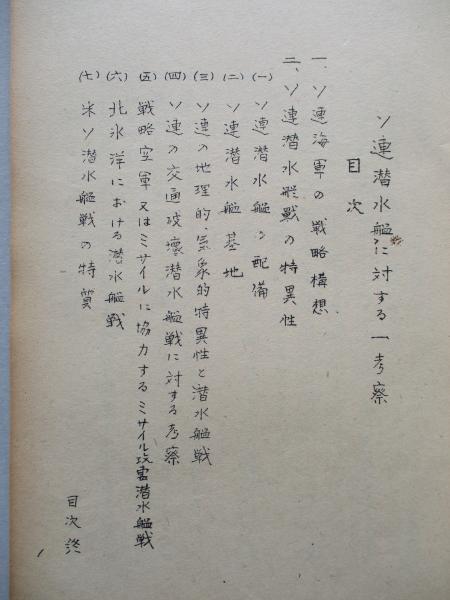 ソ連潜水艦に対する一考察
目次
一、ソ連海軍の戦略構想
二、ソ連潜水艦戦の特異性
(一) ソ連潜水艦の配備
(二) ソ連潜水艦基地
(三) ソ連の地理的、気象的特異性と潜水艦戦
(四) ソ連の交通破壊潜水艦戦に対する考察
(五) 戦略空軍又はミサイルに協力するミサイル攻撃潜水艦戦
(六) 北氷洋における潜水艦戦
(七) 米ソ潜水艦戦の特質
目次終